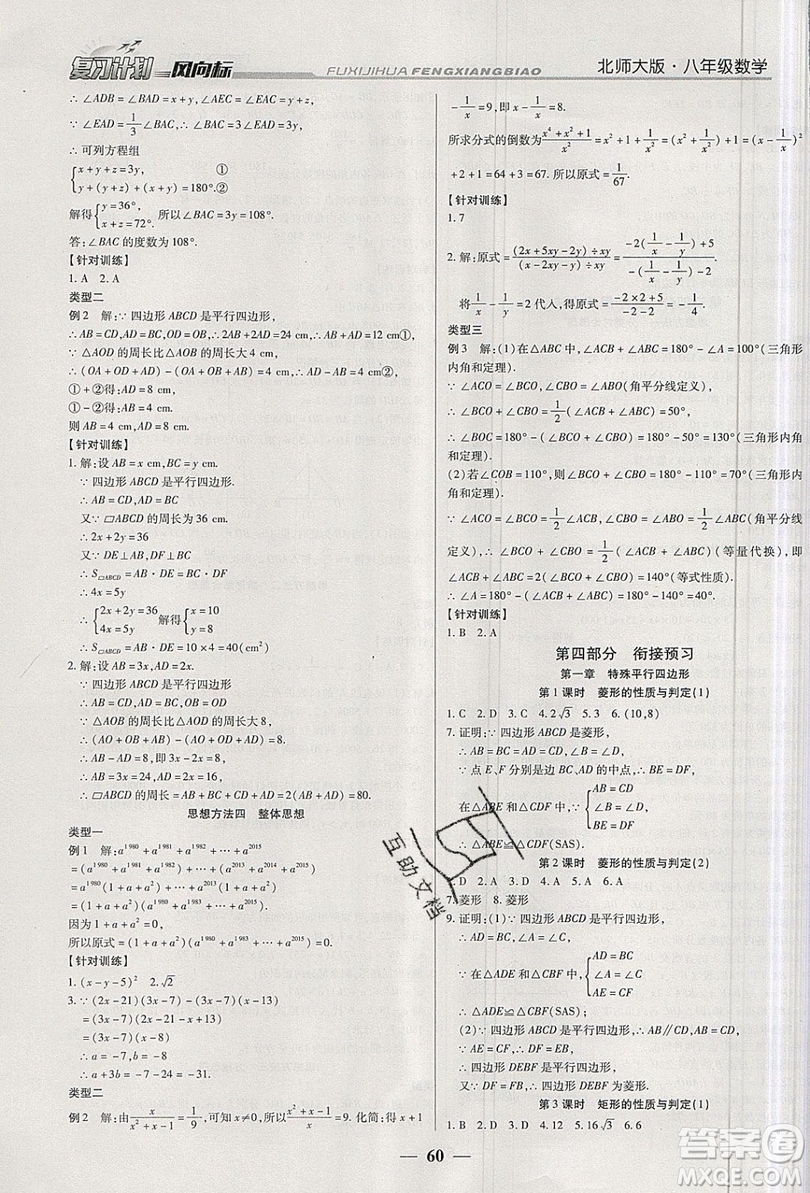 复习计划 风向标 FUXIJIHUA FENGXIANGBIAO 北师大版·八年级数学
∴∠ADB=∠BAD=x+y,
∵∠EAD=1/3∠BAC,
∴可列方程组
{x+y+y=3y, ①
y+(y+y)+(x+y)=180°.②
解得{y=36°, x=72°. 所以∠BAC=3y=108°.
答:∠BAC的度数为108°.
【针对训练】
1. A 2. A
类型二
例2 解:∵四边形ABCD是平行四边形,
∴AB=CD,AD=BC,∴2AB+2AD=24 cm,∴AB+AD=12 cm①.
∵△AOD的周长比△AOB的周长大4 cm,
∴(OA+OD+AD)-(OA+OB+AB)=AD-AB=4 cm②,
①+②得:AD=8 cm,
①-②得:AB=4 cm.
则AB=4 cm,AD=8 cm.
【针对训练】
1. 解:设AB=x cm,BC=y cm.
∵四边形ABCD是平行四边形.
∴AB=CD,AD=BC
又∵▱ABCD的周长为36 cm.
∴2x+2y=36
又∵DE⊥AB,DF⊥BC
∴S▱ABCD=AB·DE=BC·DF
∴4x=5y
∴{2x+2y=36 4x=5y 解得{x=10 y=8
∴S▱ABCD=AB·DE=10×4=40(cm²)
2. 解:设AB=CD=x,AD=BC=2x.
∵四边形ABCD是平行四边形
∴AO=CO,BO=DO
∵△AOB的周长比△AOD的周长大8,
∴(AO+OB+AB)-(AO+OD+AD)=8
∴AB-AD=8,即3x-2x=8
∴AB=3x=24,AD=2x=16
∴▱ABCD的周长=2(AB+AD)=2×(24+16)=80.
思想方法四 整体思想
类型一
例1 解:∵a¹⁹⁸⁰+a¹⁹⁸¹+a¹⁹⁸²+⋯+a²⁰¹³+a²⁰¹⁴+a²⁰¹⁵
=a¹⁹⁸⁰(1+a+a²)+⋯+a²⁰¹³(1+a+a²)
=(1+a+a²)(a¹⁹⁸⁰+a¹⁹⁸³+⋯+a²⁰¹³).
因为1+a+a²=0,
所以原式=(1+a+a²)(a¹⁹⁸⁰+a¹⁹⁸³+⋯+a²⁰¹⁵)=0.
【针对训练】
1. (x-y-5)² 2. √2
3. ∵(2x-21)(3x-7)-(3x-7)(x-13)
=(3x-7)(2x-21-x+13)
=(3x-7)(x-8)
=(3x+a)(x+b)
∴a=-7,b=-8
∴a+3b=-7-24=-31.
类型二
例2 解:由x/(x²+x-1)=1/9,可知x≠0,所以(x²+x-1)/x=9.化简:得x+1
-1/x=9,即x-1/x=8.
所求分式的倒数为(x⁴+x²+1)/x²=x²+1+1/x²=(x²+1/x²)+1=(x-1/x)²
+2+1=64+3=67.所以原式=1/67.
【针对训练】
1. 7
2. 解:原式=((2x+5xy-2y)÷xy)/((x-2xy-y)÷xy)=(-2(1/x-1/y)+5)/(-(1/x-1/y)-2)
将1/x-1/y=2代人,所以原式=(-2×2+5)/(-2-2)=-1/4.
类型三
例3 解:(1)在△ABC中,∠ACB+∠ABC=180°-∠A=100°(三角形
内角和定理).
∵∠ACO=∠BCO,∠CBO=∠ABO(角平分线定义),
∴∠BCO+∠CBO=1/2(∠ACB+∠ABC)=50°,
∴∠BOC=180°-(∠BCO+∠CBO)=180°-50°=130°(三角形内
角和定理).
(2)若∠COB=110°,则∠BCO+∠CBO=180°-110°=70°(三角形内
角和定理).
∵∠ACO=∠BCO=1/2∠ACB,∠CBO=∠ABO=1/2∠ABC(角平分线
定义),∴∠BCO+∠CBO=1/2(∠ACB+∠ABC)(等量代换),即
∠ABC+∠ACB=2(∠BCO+∠CBO)=140°(等式性质).
∴∠A=180°-(∠ABC+∠ACB)=180°-140°=40°.
【针对训练】
1. B 2. A
第四部分 衔接预习
第一章 特殊平行四边形
第1课时 菱形的性质与判定(1)
1. C 2. D 3. C 4. 2√3 5. 3 6. (10,8)
7. 证明:∵四边形ABCD是菱形,
∴AB=BC=CD=AD,∠B=∠D,
∵点E、F分别是边BC、AD的中点,∴BE=DF,
在△ABE和△CDF中,∵{AB=CD ∠B=∠D BE=DF
∴△ABE≌△CDF(SAS).
第2课时 菱形的性质与判定(2)
1. D 2. D 3. A 4. B 5. 16 6. 1
7. 菱形 8. 菱形
9. 证明:(1)∵四边形ABCD是平行四边形,
∴AD=BC,∠A=∠C,
∵在△ADE和△CBF中,{AD=BC ∠A=∠C AE=CF
∴△ADE≌△CBF(SAS);
(2)∵四边形ABCD是平行四边形,∴AB∥CD,AB=CD,
∵AE=CF,∴DF=EB,
∴四边形DEBF是平行四边形,
又∵DF=FB,∴四边形DEBF为菱形.
第3课时 矩形的性质与判定(1)
1. B 2. D 3. B 4. B 5. 16 6. 6
60
互助文档
答案圈
MXQE.COM